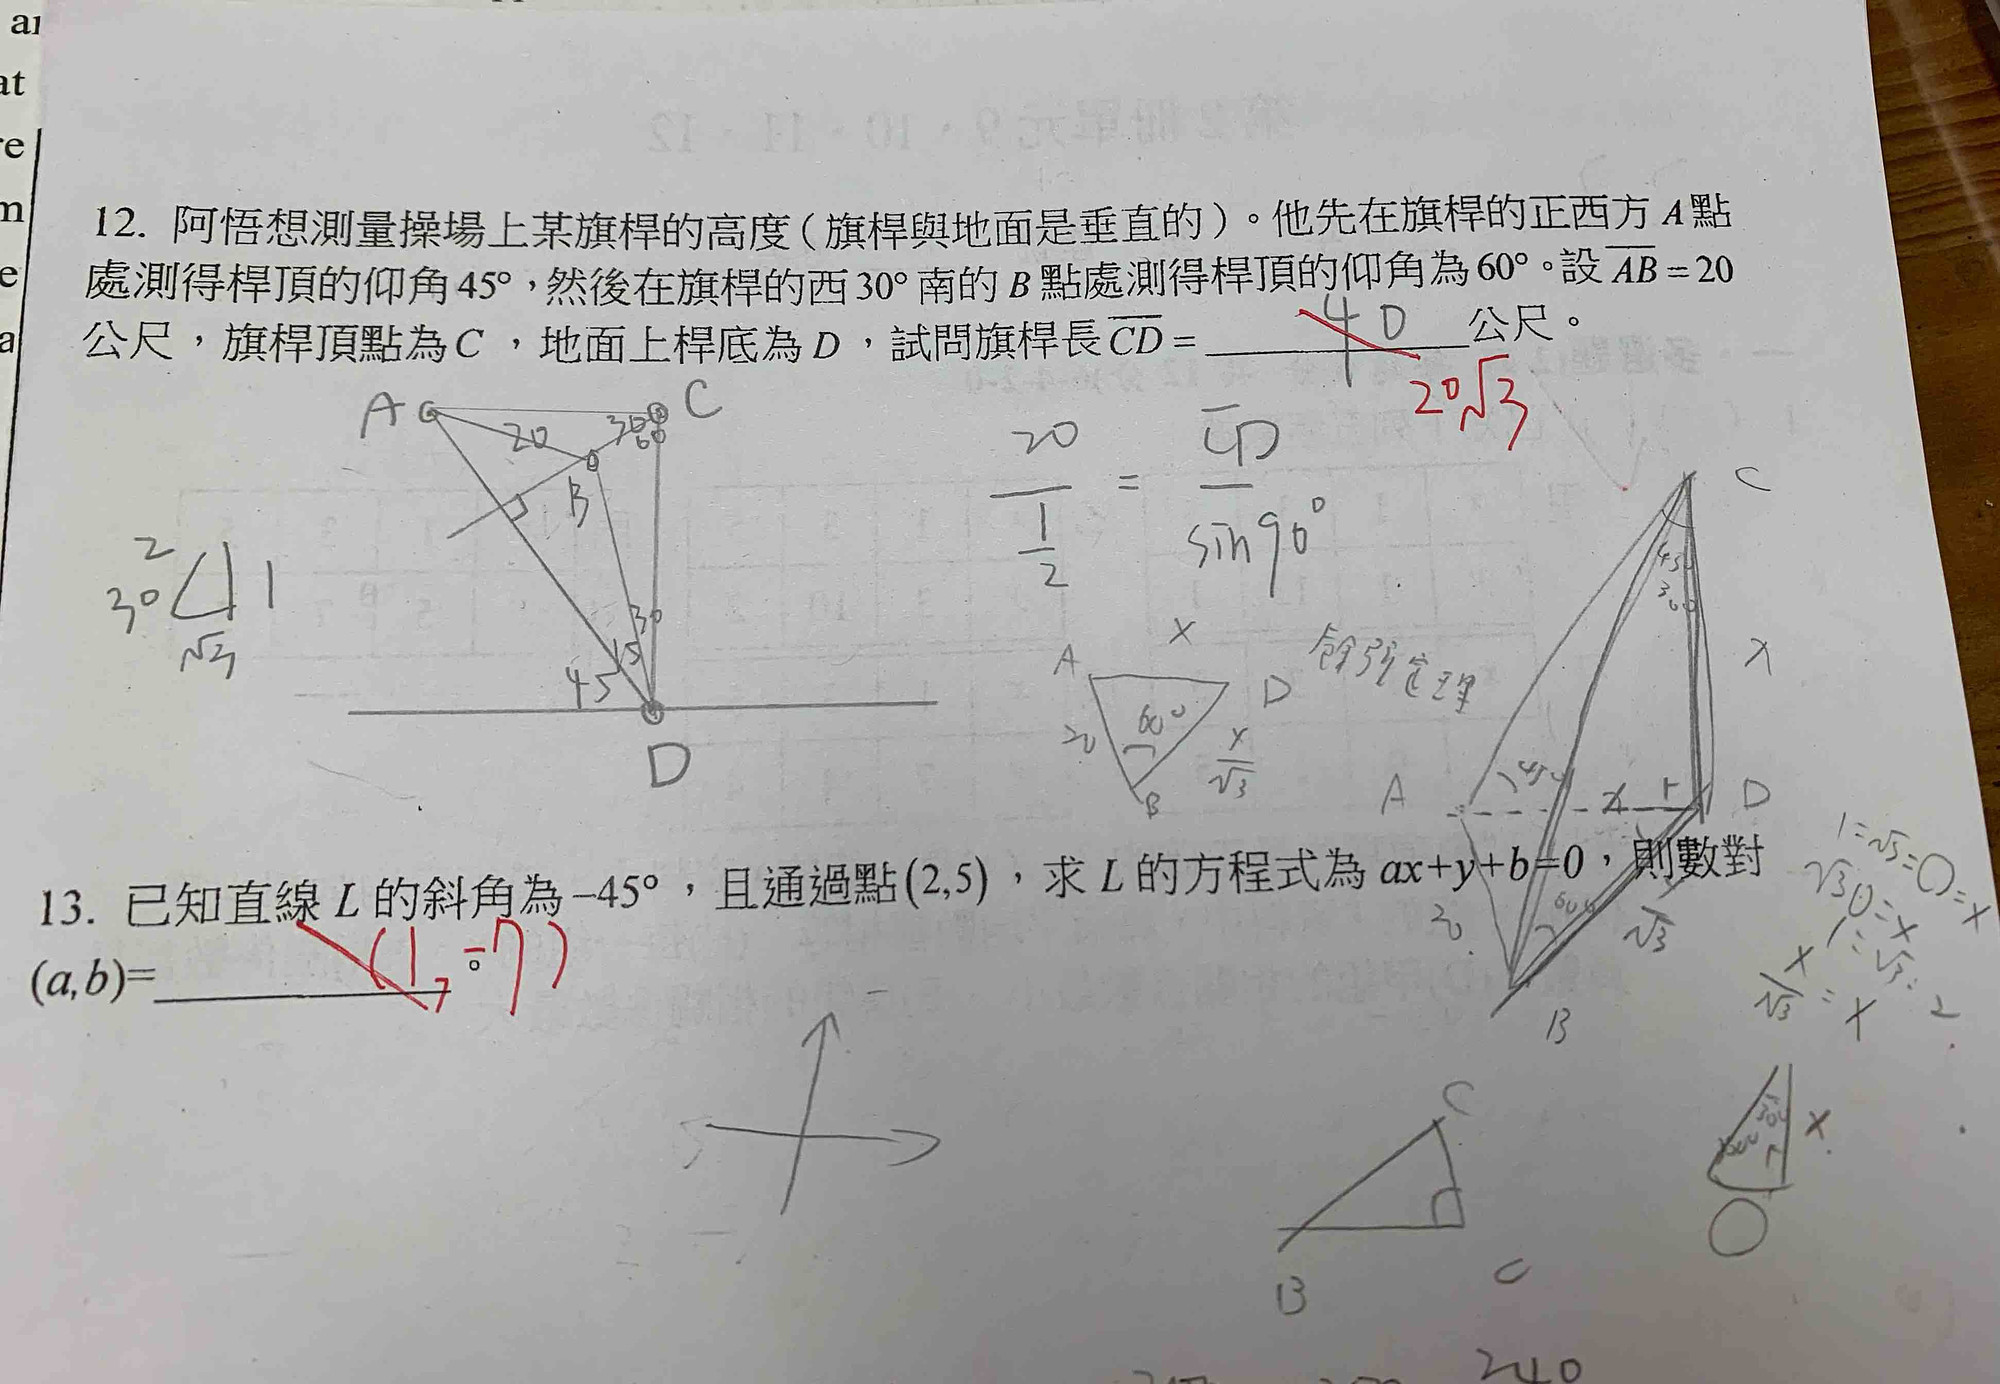 ar
at
re
m
e
a
12. 阿悟想測量操場上某旗桿的高度(旗桿與地面是垂直的)。他先在旗桿的正西方 A 點
處測得桿頂的仰角45°,然後在旗桿的西30°南的 B 點處測得桿頂的仰角為60°。設 AB = 20
公尺,旗桿頂點為C,地面上桿底為D,試問旗桿長 CD = 40 公尺。
20√3
A
20
30
60
C
B
45
15
30
D
2
30
1
√3
20
1
2
=
CD
sin90°
A
X
D
20
60°
x
√3
B
餘弦定理
C
45°
30°
x
A
45°
x
D
20
60°
√3
B
13. 已知直線 L 的斜角為–45°,且通過點(2,5),求 L 的方程式為 ax+y+b=0,則數對
(a,b)=
(1, -7)
1=√3=O=x
√3O=x
x
√3
= x
C
B
C
30°
x
240